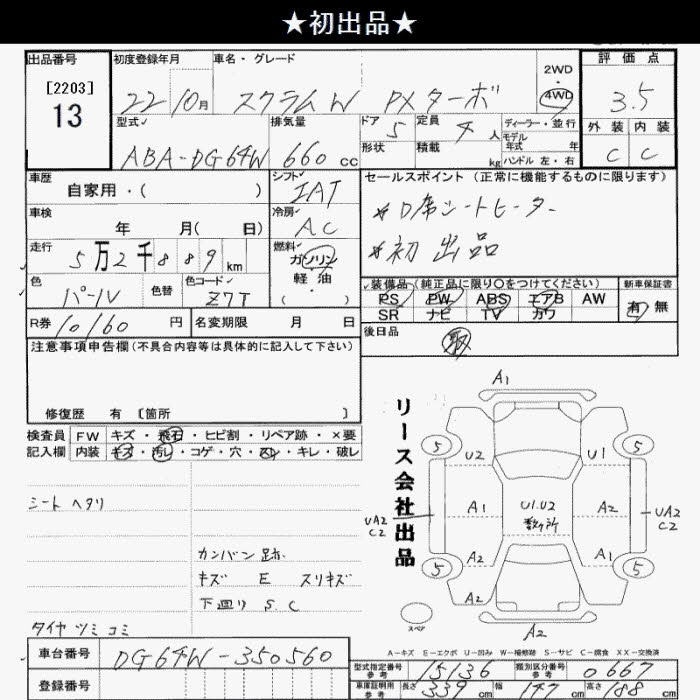 ★初出品★
出品番号 初度登録年月 車名・グレード 2WD 評価点
[2203] 22 10月 スクラムW PXターボ 4WD 3.5
13
型式 排気量 ドア 定員 ディーラー・並行 外装 内装
5 4人 モデル年式 年
ABA-DG64W 660cc 形状 積載 kg ハンドル 左・右 C C
車歴 シフト セールスポイント (正常に機能するものに限ります)
自家用・( ) IAT *D席シートヒーター
車検 冷房 *初出品
年 月( 日) AC
走行 燃料
5万2千889km ガソリン
色 色替 色コード 軽油 装備品 (純正品に限り○をつけてください) 新車保証書
パール Z7T ( ・ ) PS PW ABS エアB AW 有 無
SR ナビ TV カワ
R券 10160円 名変期限 月 日 後日品
取
注意事項申告欄(不具合内容等は具体的に記入して下さい)
修復歴 有 [箇所 ]
検査員 FW キズ・飛石・ヒビ割・リペア跡・×要
記入欄 内装 キズ・汚レ・コゲ・穴・スレ・キレ・破レ
シート ヘタリ
カンバン跡
キズ E スリキズ
下回り S C
タイヤ ツミ コミ
リース会社出品
A1
5 5
U2 U1
A1 U1.U2 A2
数ヶ所
UA2 UA2
C2 C2
A2 A1
5 5
A2
スペア A2
A-キズ E-エクボ U-凹み W-補修跡 S-サビ C-腐食 XX-交換済
車台番号 DG64W-350560
型式指定番号 参考 15136 類別区分番号 参考 0667
登録番号
車庫証明用 参考 長さ 339cm 幅 147cm 高さ 188cm